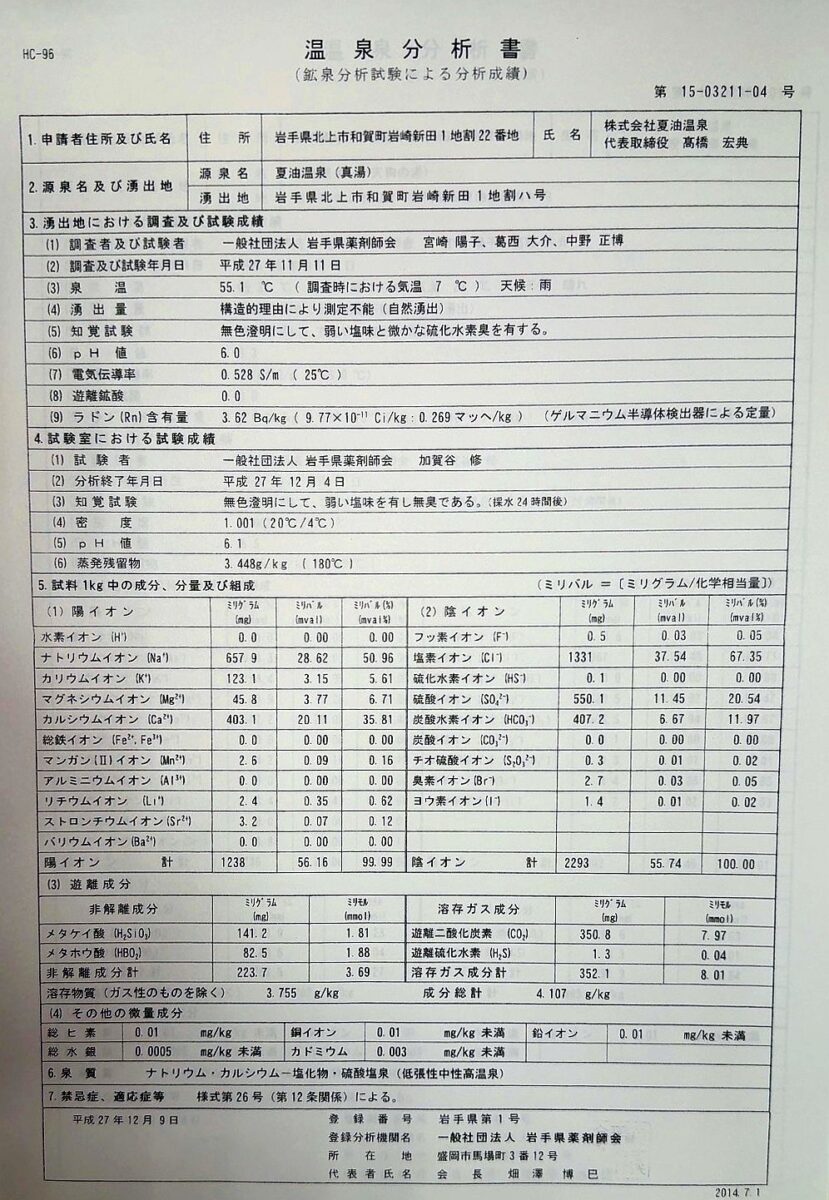 HC-96
温泉分析書
(鉱泉分析試験による分析成績)
第 15-03211-04 号
1.申請者住所及び氏名 住所 岩手県北上市和賀町岩崎新田1地割22番地 氏名 株式会社夏油温泉
代表取締役 髙橋 宏典
2.源泉名及び湧出地 源泉名 夏油温泉(真湯)
湧出地 岩手県北上市和賀町岩崎新田1地割ハ号
3.湧出地における調査及び試験成績
(1) 調査者及び試験者 一般社団法人 岩手県薬剤師会 宮崎 陽子、葛西 大介、中野 正博
(2) 調査及び試験年月日 平成27年11月11日
(3) 泉温 55.1 ℃ ( 調査時における気温 7 ℃ ) 天候:雨
(4) 湧出量 構造的理由により測定不能(自然湧出)
(5) 知覚試験 無色澄明にして、弱い塩味と微かな硫化水素臭を有する。
(6) pH値 6.0
(7) 電気伝導率 0.528 S/m ( 25℃ )
(8) 遊離鉱酸 0.0
(9) ラドン(Rn)含有量 3.62 Bq/kg ( 9.77×10⁻¹¹ Ci/kg:0.269マッヘ/kg ) (ゲルマニウム半導体検出器による定量)
4.試験室における試験成績
(1) 試験者 一般社団法人 岩手県薬剤師会 加賀谷 修
(2) 分析終了年月日 平成27年12月4日
(3) 知覚試験 無色澄明にして、弱い塩味を有し無臭である。(採水24時間後)
(4) 密度 1.001 (20℃/4℃)
(5) pH値 6.1
(6) 蒸発残留物 3.448g/kg ( 180℃ )
5.試料1kg中の成分、分量及び組成 (ミリバル = [ミリグラム/化学相当量])
(1) 陽イオン ミリグラム(mg) ミリバル(mval) ミリバル(%)(mval%) (2) 陰イオン ミリグラム(mg) ミリバル(mval) ミリバル(%)(mval%)
水素イオン (H⁺) 0.0 0.00 0.00 フッ素イオン (F⁻) 0.5 0.03 0.05
ナトリウムイオン (Na⁺) 657.9 28.62 50.96 塩素イオン (Cl⁻) 1331 37.54 67.35
カリウムイオン (K⁺) 123.1 3.15 5.61 硫化水素イオン (HS⁻) 0.1 0.00 0.00
マグネシウムイオン (Mg²⁺) 45.8 3.77 6.71 硫酸イオン (SO₄²⁻) 550.1 11.45 20.54
カルシウムイオン (Ca²⁺) 403.1 20.11 35.81 炭酸水素イオン (HCO₃⁻) 407.2 6.67 11.97
総鉄イオン (Fe²⁺,Fe³⁺) 0.0 0.00 0.00 炭酸イオン (CO₃²⁻) 0.0 0.00 0.00
マンガン(II)イオン (Mn²⁺) 2.6 0.09 0.16 チオ硫酸イオン (S₂O₃²⁻) 0.3 0.01 0.02
アルミニウムイオン (Al³⁺) 0.0 0.00 0.00 臭素イオン(Br⁻) 2.7 0.03 0.05
リチウムイオン (Li⁺) 2.4 0.35 0.62 ヨウ素イオン(I⁻) 1.4 0.01 0.02
ストロンチウムイオン(Sr²⁺) 3.2 0.07 0.12
バリウムイオン(Ba²⁺) 0.0 0.00 0.00
陽イオン 計 1238 56.16 99.99 陰イオン 計 2293 55.74 100.00
(3) 遊離成分
非解離成分 ミリグラム(mg) ミリモル(mmol) 溶存ガス成分 ミリグラム(mg) ミリモル(mmol)
メタケイ酸 (H₂SiO₃) 141.2 1.81 遊離二酸化炭素 (CO₂) 350.8 7.97
メタホウ酸 (HBO₂) 82.5 1.88 遊離硫化水素 (H₂S) 1.3 0.04
非解離成分計 223.7 3.69 溶存ガス成分計 352.1 8.01
溶存物質(ガス性のものを除く) 3.755 g/kg 成分総計 4.107 g/kg
(4) その他の微量成分
総ヒ素 0.01 mg/kg 未満 銅イオン 0.01 mg/kg 未満 鉛イオン 0.01 mg/kg 未満
総水銀 0.0005 mg/kg 未満 カドミウム 0.003 mg/kg 未満
6.泉質 ナトリウム・カルシウム-塩化物・硫酸塩泉(低張性中性高温泉)
7.禁忌症、適応症等 様式第26号(第12条関係)による。
平成27年12月9日 登録番号 岩手県第1号
登録分析機関名 一般社団法人 岩手県薬剤師会
所在地 盛岡市馬場町3番12号
代表者氏名 会長 畑澤博巳
2014.7.1